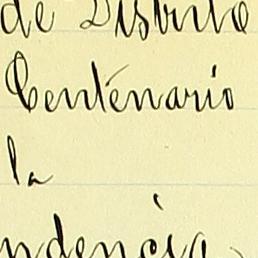 de Distrito
Centenario
la
ndencia